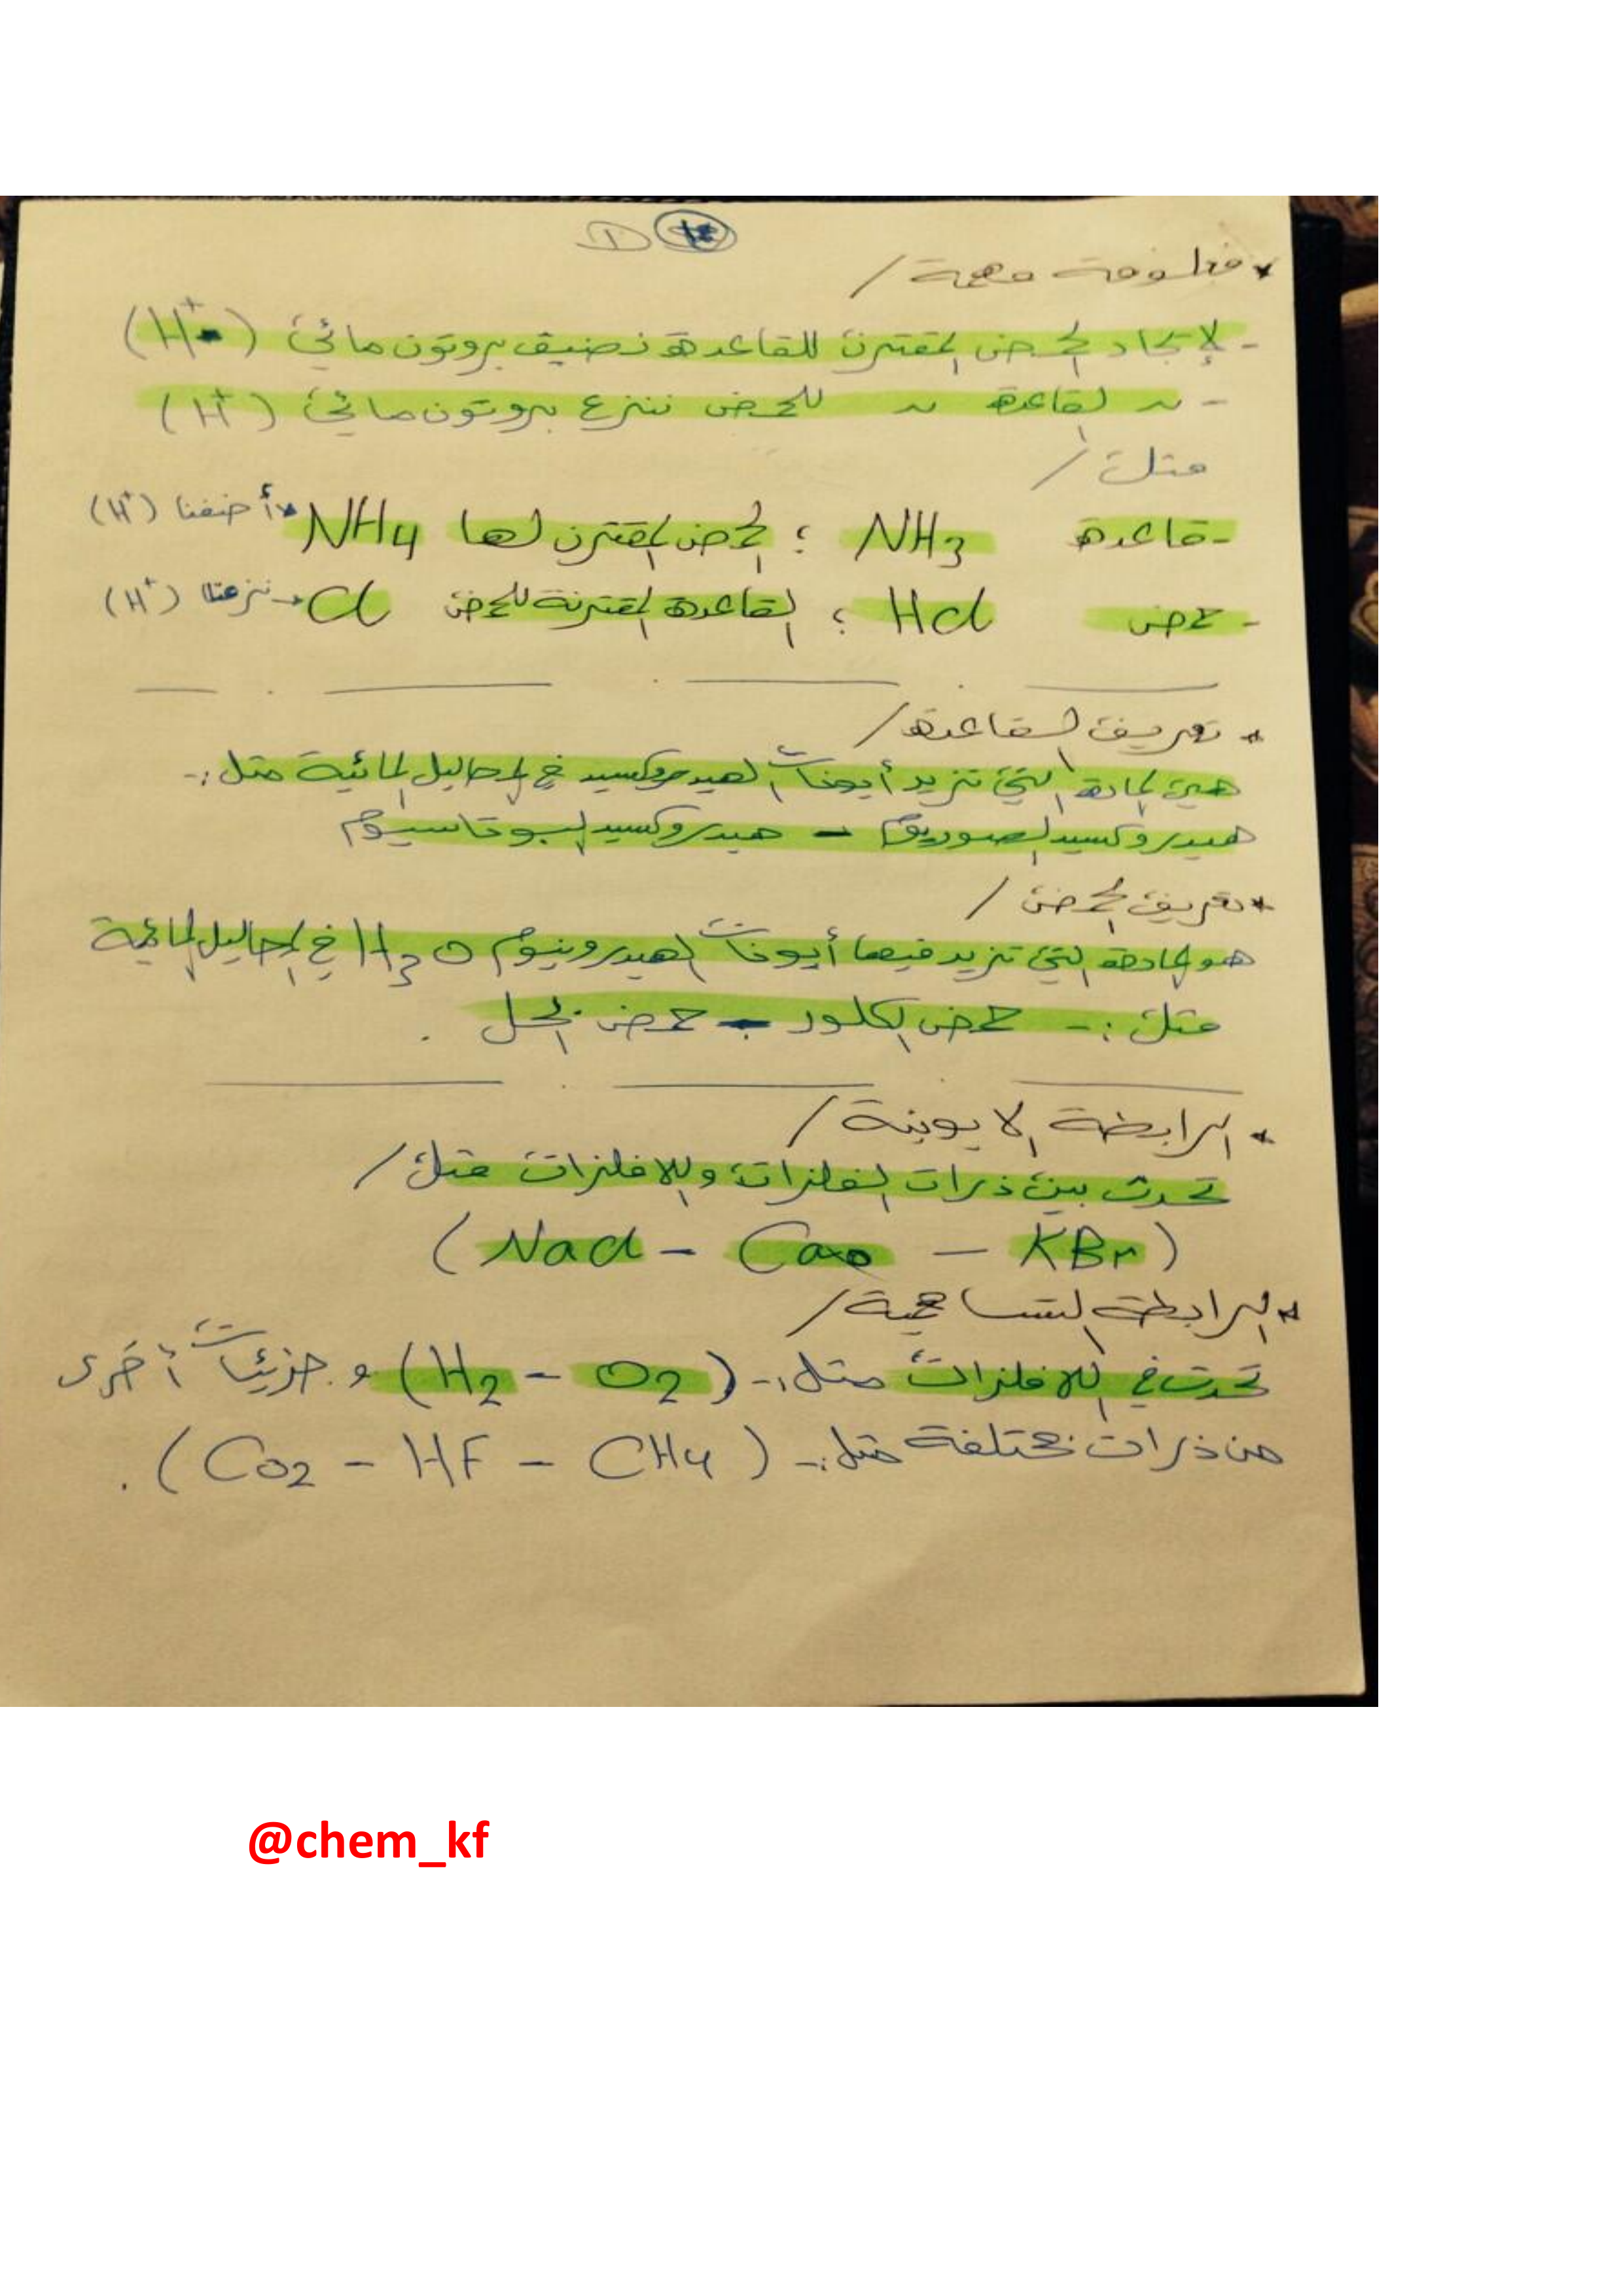 ①
* معلومة مهمة /
- لإيجاد الحمض المقترن للقاعدة نضيف بروتون مائي (H+)
- ~ القاعدة ~ للحمض ننزع بروتون مائي (H+)
مثل /
- قاعدة NH3 ؛ الحمض المقترن لها NH4 أضفنا (H+)
- حمض HCl ؛ القاعدة المقترنة للحمض Cl → نزعنا (H+)
* تعريف القاعدة /
هي المادة التي تزيد أيونات الهيدروكسيد في المحاليل المائية مثل :-
هيدروكسيد الصوديوم - هيدروكسيد البوتاسيوم
* تعريف الحمض /
هو المادة التي تزيد فيها أيونات الهيدرونيوم H3O في المحاليل المائية
مثل :- حمض الكلور - حمض الخل .
* الرابطة الايونية /
تحدث بين ذرات الفلزات واللافلزات مثل /
(NaCl - CaO - KBr)
* الرابطة التساهمية /
تحدث في اللافلزات مثل :- (H2 - O2) و جزيئات أخرى
من ذرات مختلفة مثل :- (CO2 - HF - CH4) .
@chem_kf